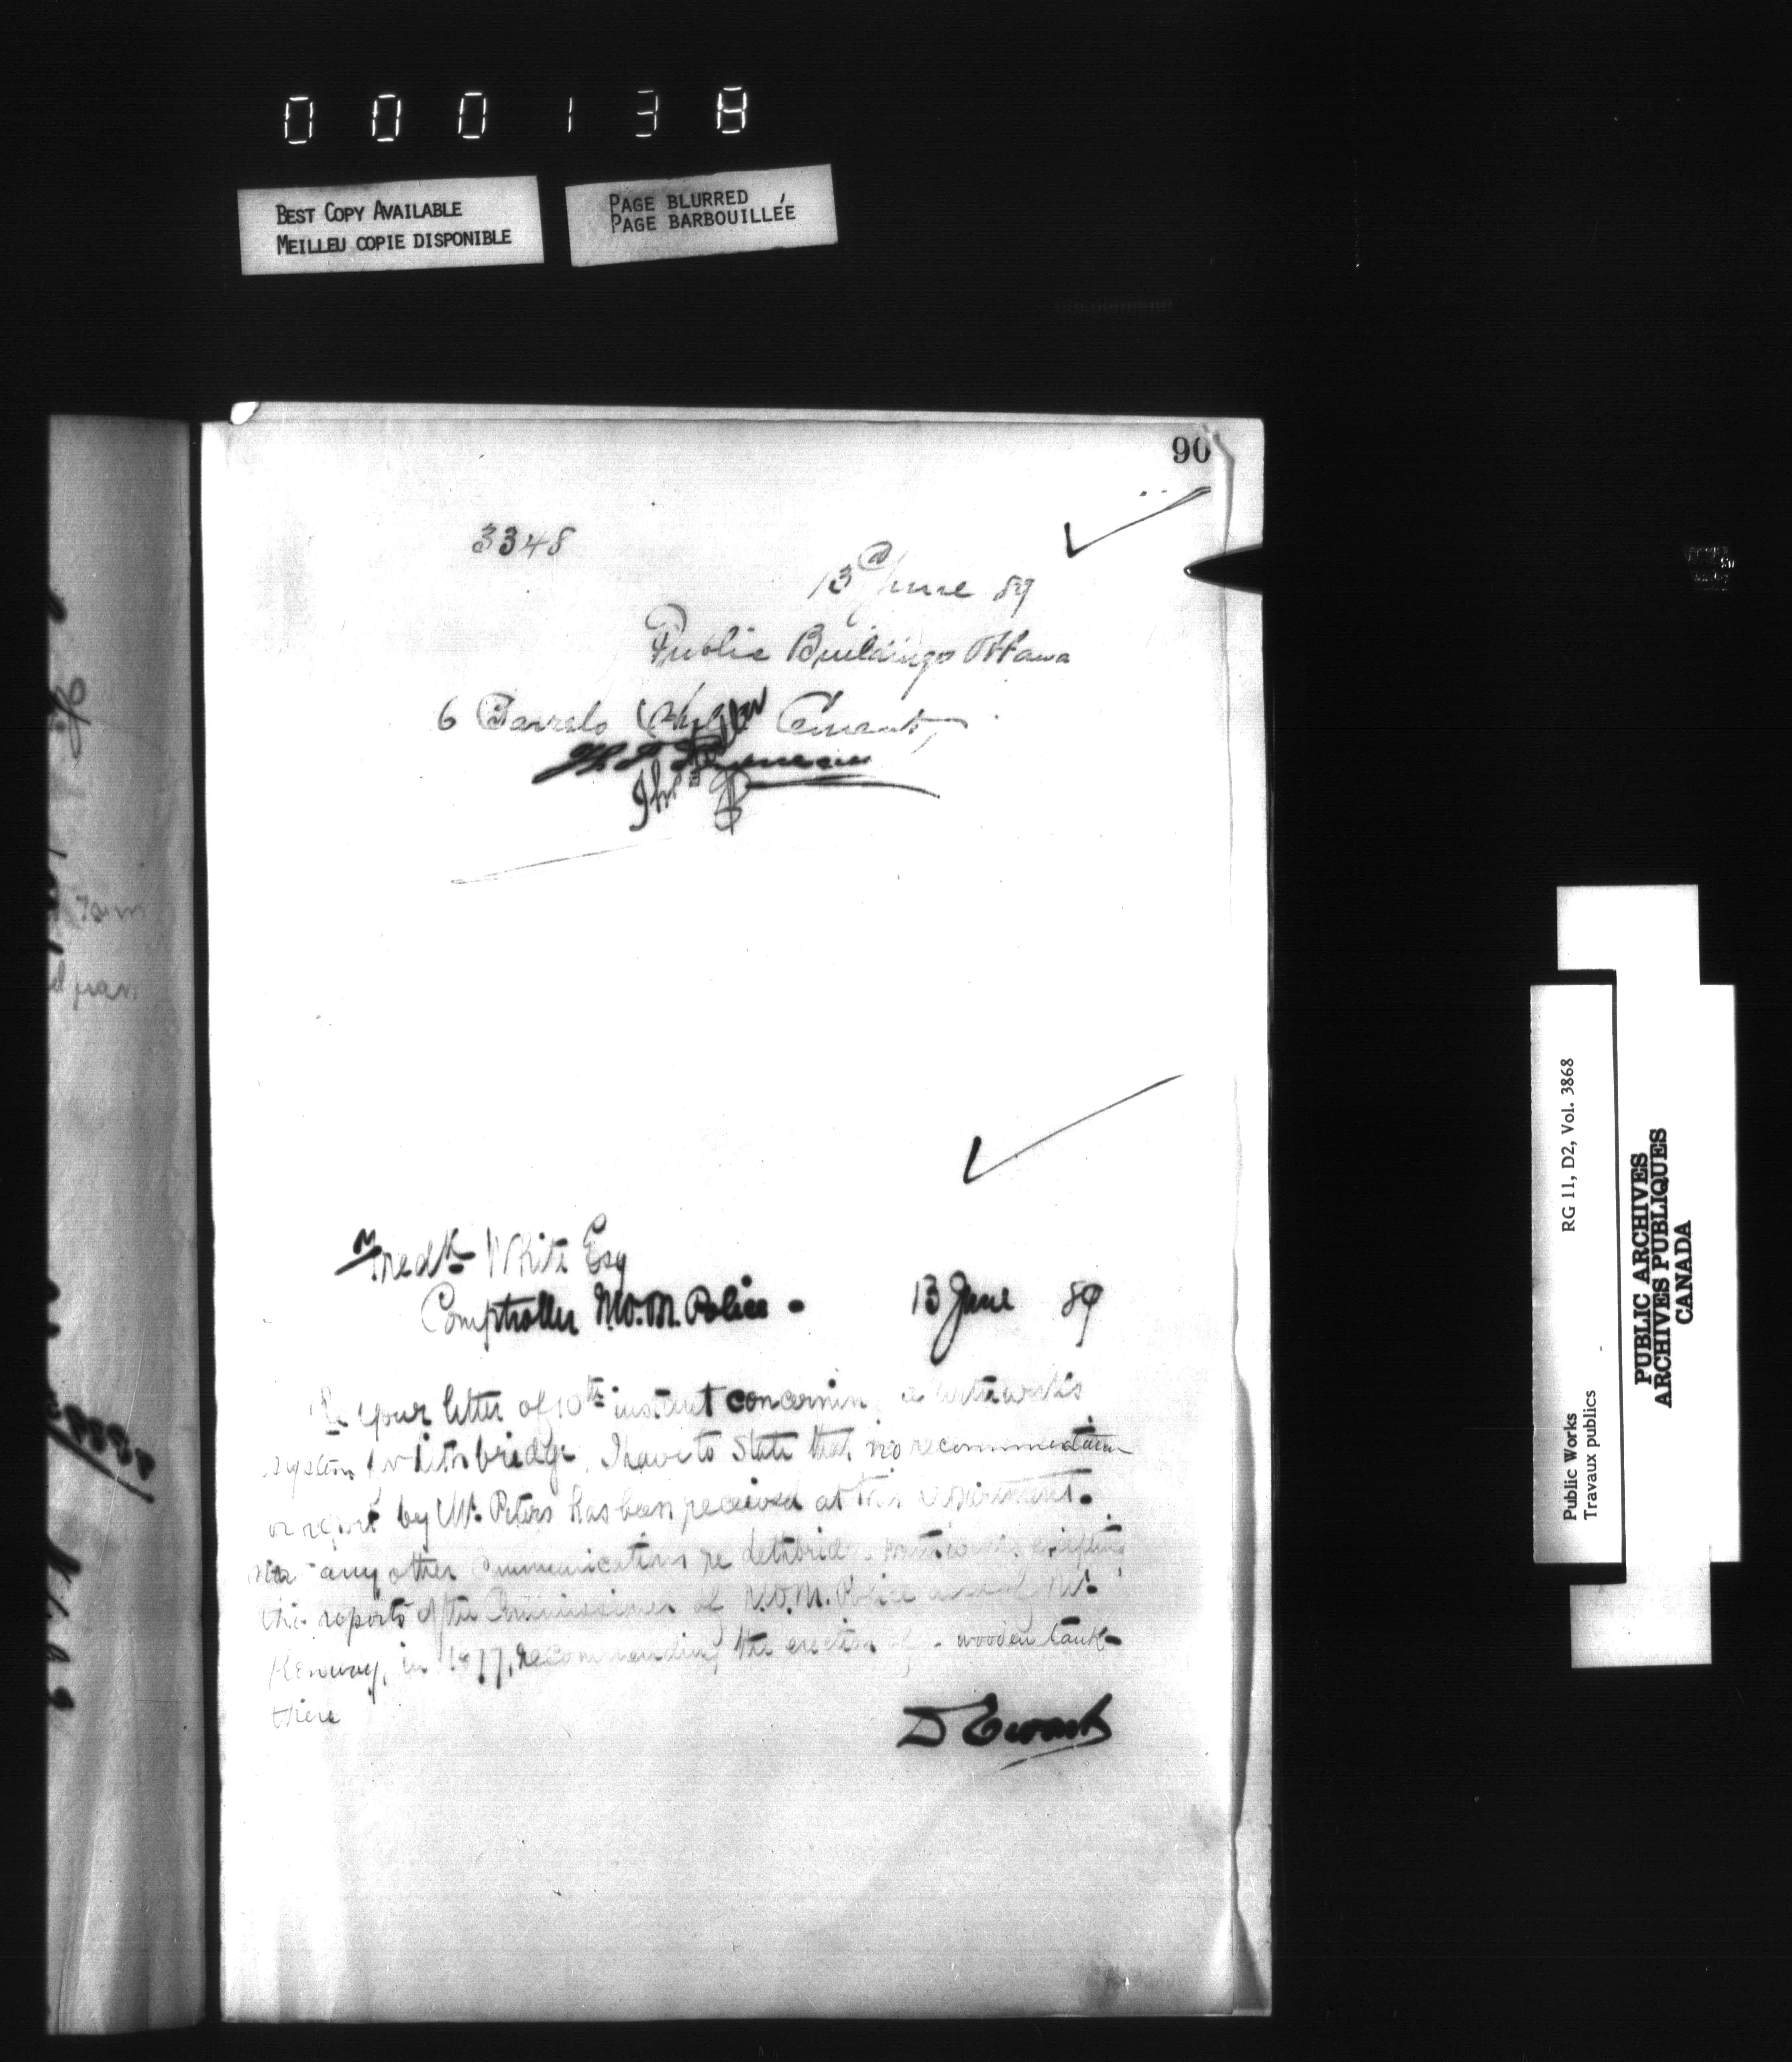 000138
BEST COPY AVAILABLE
MEILLEU COPIE DISPONIBLE
PAGE BLURRED
PAGE BARBOUILLÉE
90
3348
13 June 89
Public Buildings Ottawa
6 Barrels Cement
Fredk White Esq
Comptroller N.W.M. Police
13 June 89
Re your letter of 10th instant concerning a waterworks
system for Lethbridge, I have to state that no recommendation
or report by Mr. Peters has been received at this Department.
nor any other communications re Lethbridge waterworks, excepting
the reports of the Commissioner of N.W.M. Police and of Mr.
in 1877, recommending the erection of a wooden tank
there
D Ewart
RG 11, D2, Vol. 3868
Public Works
Travaux publics
PUBLIC ARCHIVES
ARCHIVES PUBLIQUES
CANADA